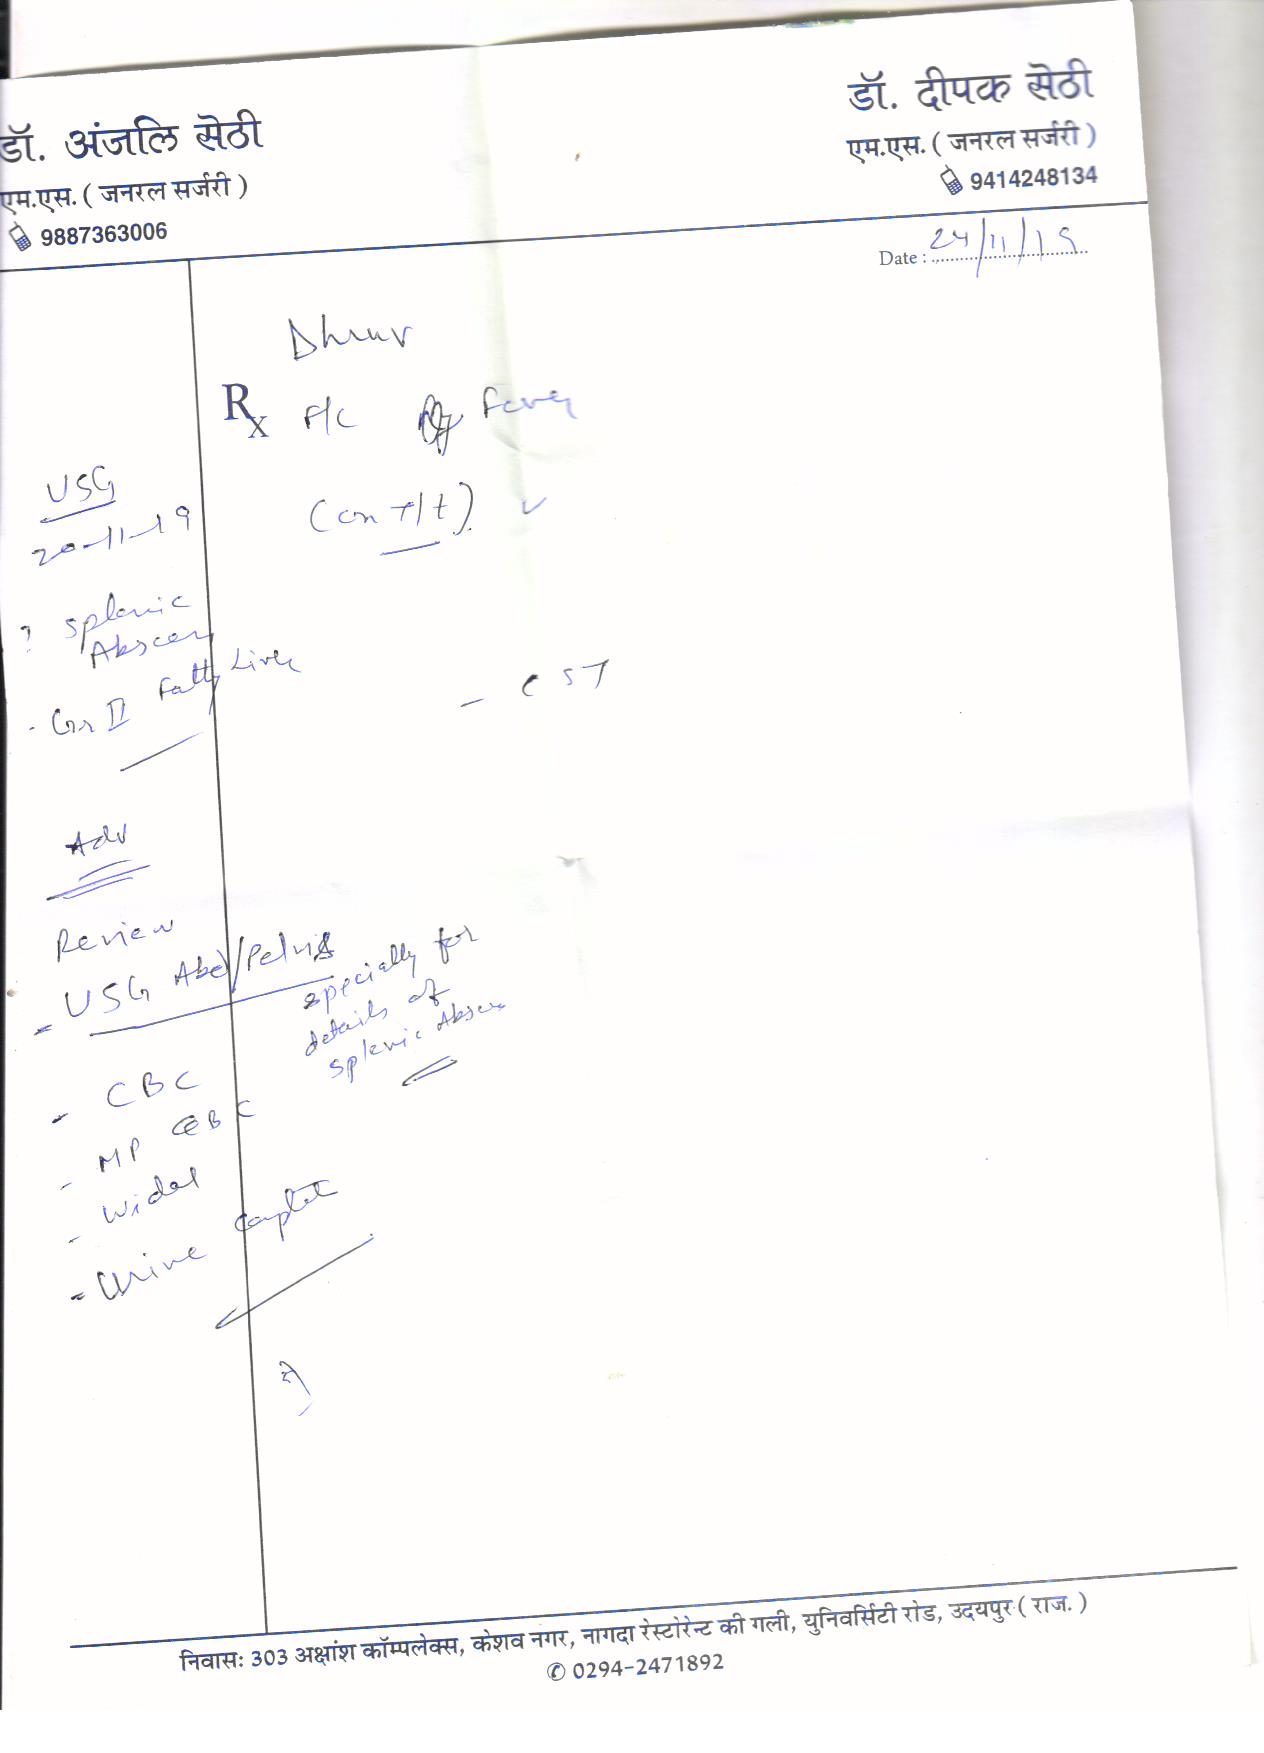 डॉ. अंजलि सेठी
एम.एस. ( जनरल सर्जरी )
9887363006
डॉ. दीपक सेठी
एम.एस. ( जनरल सर्जरी )
9414248134
Date : 24/11/19
Dhruv
Rx F/C Fever
(on T/t)
USG
20-11-19
? Splenic
Abscess
- Gr II Fatty Liver
- CST
Adv
Review
- USG Abd/Pelvis
specially for
details of
splenic Abscess
- CBC
- MP
- Widal
- Urine Complete
निवासः 303 अक्षांश कॉम्पलेक्स, केशव नगर, नागदा रेस्टोरेन्ट की गली, युनिवर्सिटी रोड, उदयपुर ( राज. )
0294-2471892